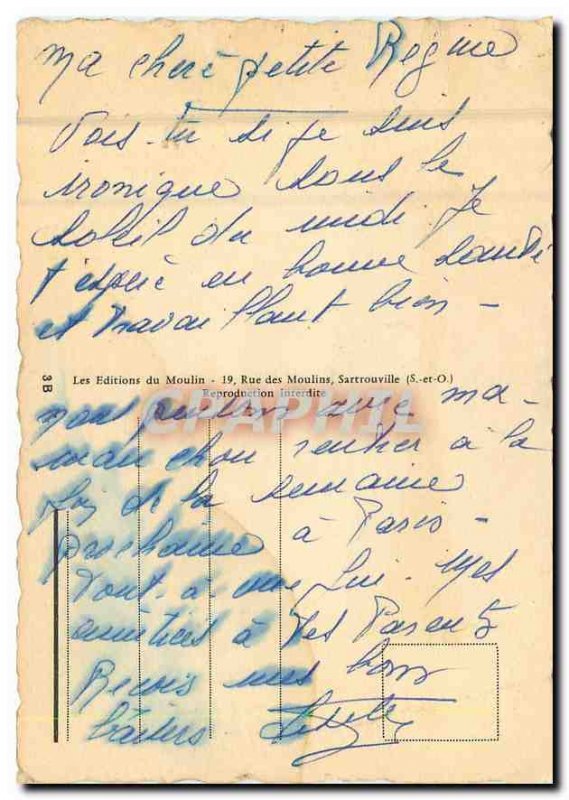 Ma chère petite Regine
Vois-tu si je suis
ironique sous le
soleil du midi. Je
t'espère en bonne santé
et travaillant bien -
3B
Les Editions du Moulin - 19, Rue des Moulins, Sartrouville (S.-et-O.)
Reproduction Interdite
CPAPHIL
nous pensons avec ma-
man chou rentrer à la
fin de la semaine
prochaine à Paris -
Tout-à-
amitiés à tes Parents
Reçois mes bons
baisers